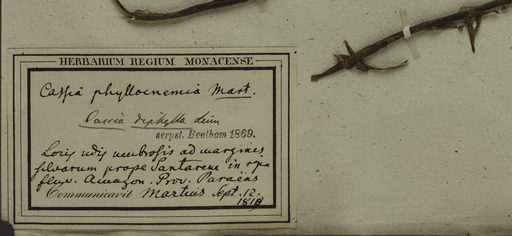 HERBARIUM REGIUM MONACENSE
Cassia phyllocnemia Mart.
Cassia diphylla Linn
scrpst. Bentham 1869.
Locis udis umbrosis ad margines
silvarum prope Santarem in ripa
fluv. Amazon. Prov. Paraëns
Communicavit Martius Sept. 12.
1819